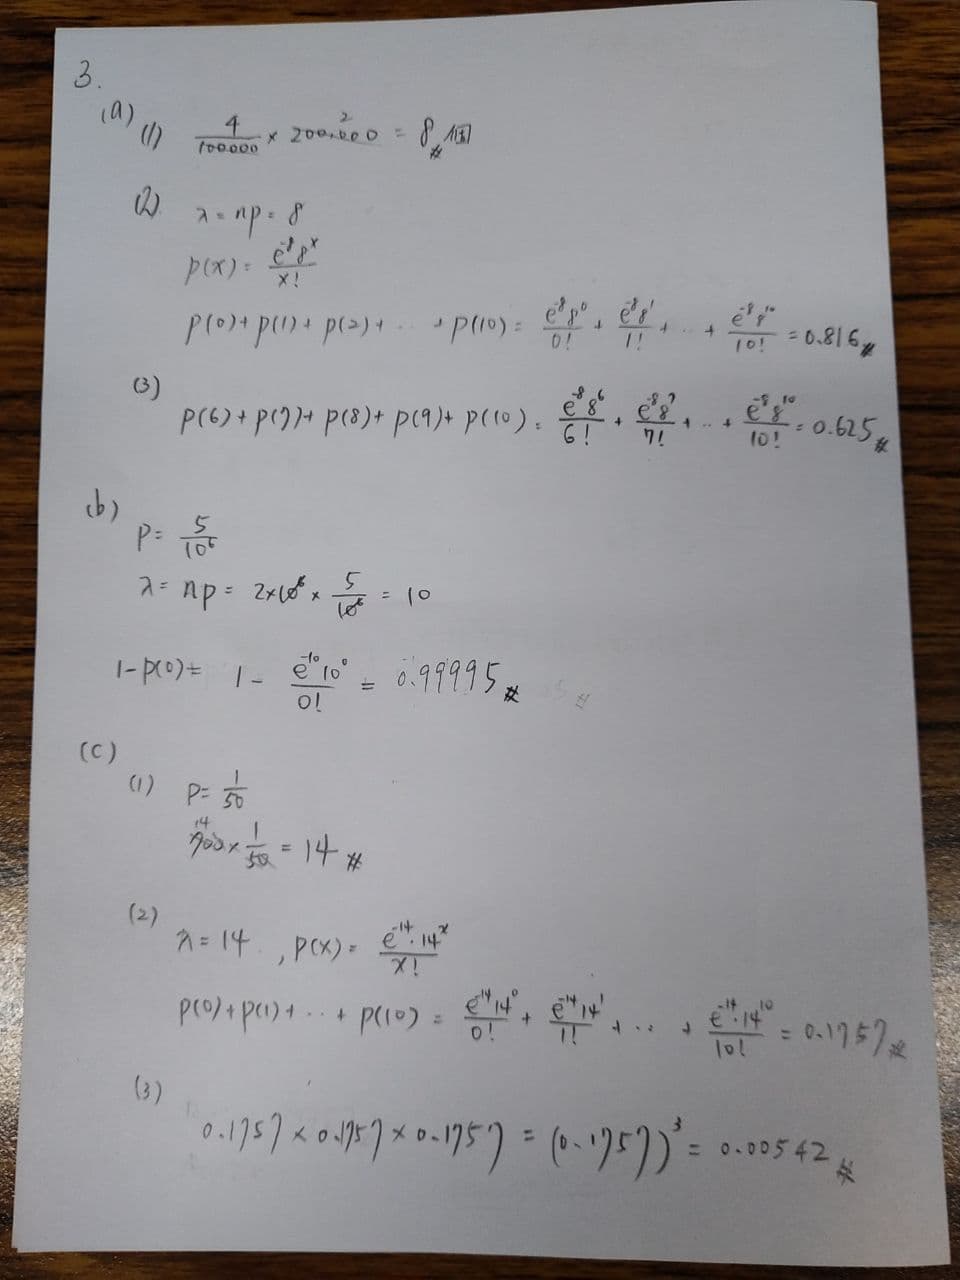 3.
(a)
(1) 4/100000 × 200,000 = 8個 #
2
(2) λ = np = 8
p(x) = e^-8 8^x / x!
p(0) + p(1) + p(2) + ... + p(10) = e^-8 8^0 / 0! + e^-8 8^1 / 1! + ... + e^-8 8^10 / 10! = 0.816 #
(3)
p(6) + p(7) + p(8) + p(9) + p(10) = e^-8 8^6 / 6! + e^-8 8^7 / 7! + ... + e^-8 8^10 / 10! = 0.625 #
(b)
p = 5/10^6
λ = np = 2×10^6 × 5/10^6 = 10
1-p(0) = 1 - e^-10 10^0 / 0! = 0.99995 #
(C)
(1) P = 1/50
14
700 × 1/50 = 14 #
(2)
λ = 14, p(x) = e^-14 · 14^x / x!
p(0) + p(1) + ... + p(10) = e^-14 14^0 / 0! + e^-14 14^1 / 1! + ... + e^-14 · 14^10 / 10! = 0.1757 #
(3)
0.1757 × 0.1757 × 0.1757 = (0.1757)^3 = 0.00542 #